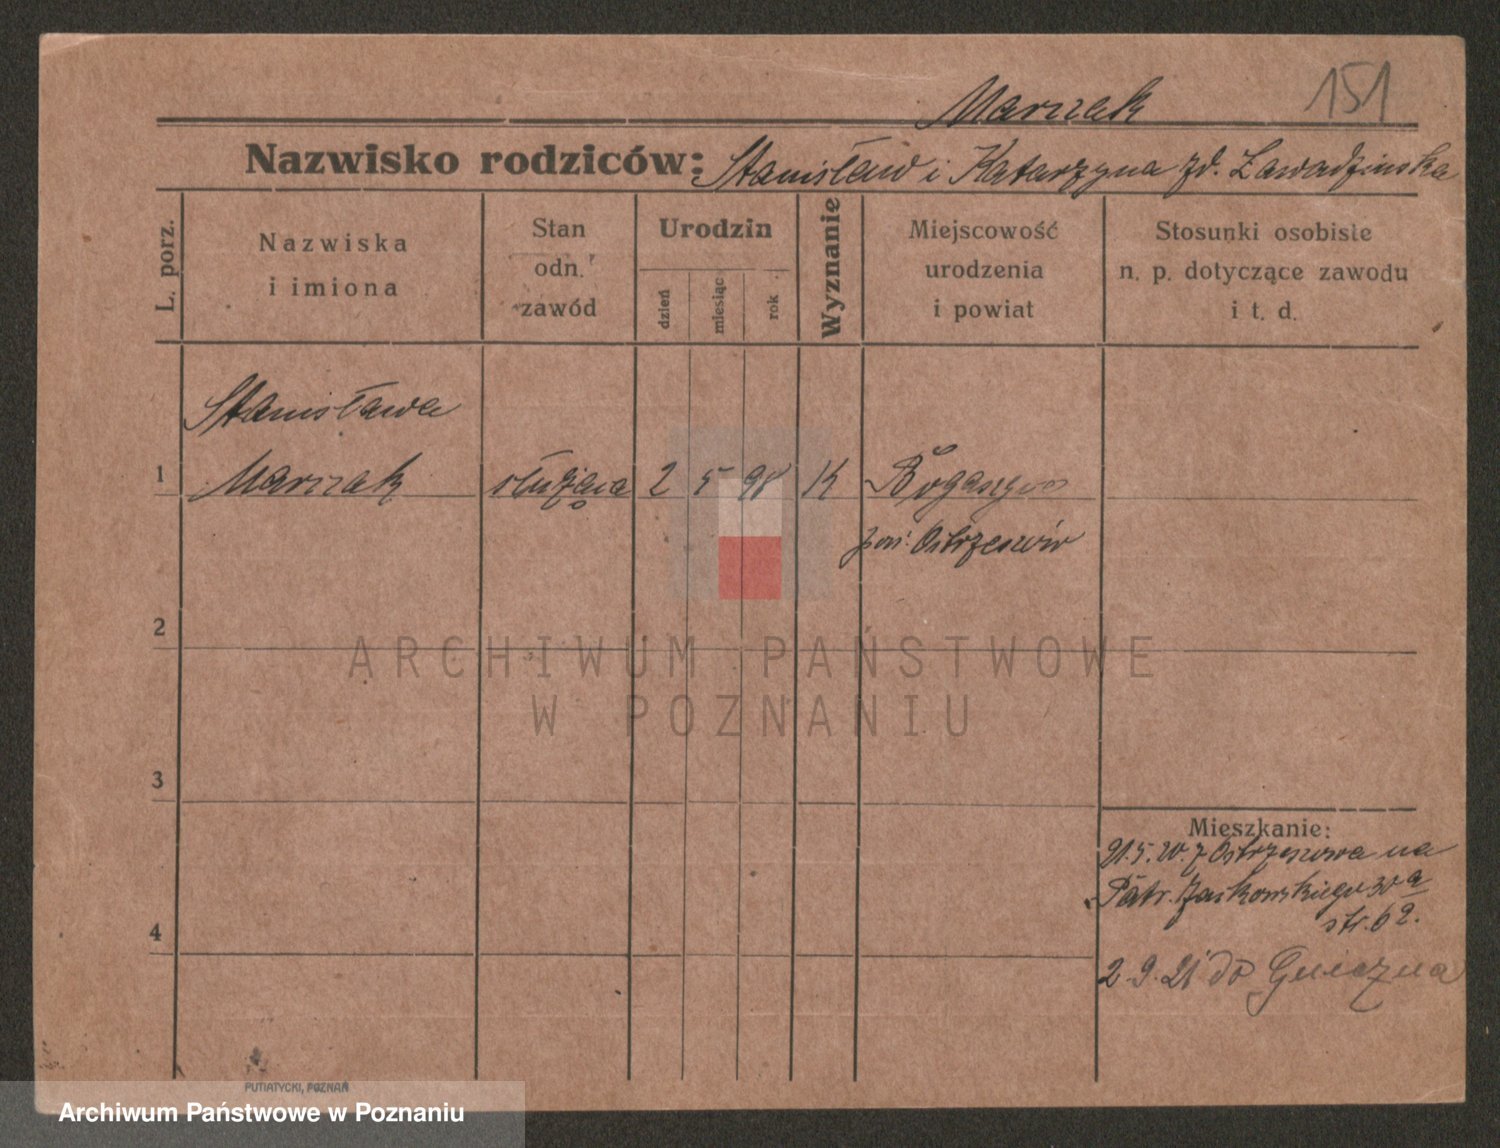 151
Marszak
Nazwisko rodziców: Stanisław i Katarzyna zd. Zawadzińska
L. porz.
Nazwiska
i imiona
Stan
odn.
zawód
Urodzin
dzień
miesiąc
rok
Wyznanie
Miejscowość
urodzenia
i powiat
Stosunki osobiste
n. p. dotyczące zawodu
i t. d.
Stanisława
1 Marszak służąca 2 5 98 K
pow. Ostrzeszów
2
3
4
Mieszkanie:
z Ostrzeszowa na
Patr. Jackowskiego 30
2.9.21 do Gniezna
ARCHIWUM PAŃSTWOWE
W POZNANIU
PUTIATYCKI, POZNAŃ
Archiwum Państwowe w Poznaniu